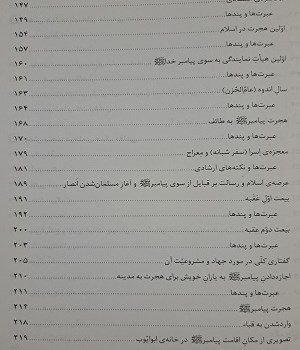 ۱۴۷
عبرت‌ها و پندها ۱۴۹
اولین هجرت در اسلام ۱۵۴
عبرت‌ها و پندها ۱۵۷
اولین هیأت نمایندگی به سوی پیامبر خداﷺ ۱۶۰
عبرت‌ها و پندها ۱۶۱
سال اندوه (عامُ‌الحُزن) ۱۶۳
عبرت‌ها و پندها ۱۶۴
هجرت پیامبرﷺ به طائف ۱۶۸
عبرت‌ها و پندها ۱۷۰
معجزه‌ی اسرا (سفر شبانه) و معراج ۱۷۹
عبرت‌ها و نکته‌های ارشادی ۱۸۱
عرضه‌ی اسلام و رسالت بر قبایل از سوی پیامبرﷺ و آغاز مسلمان‌شدن انصار ۱۸۹
بیعت اوّل عقبه ۱۹۱
عبرت‌ها و پندها ۱۹۲
بیعت دوّم عقبه ۲۰۰
عبرت‌ها و پندها ۲۰۳
گفتاری کلّی در مورد جهاد و مشروعیّت آن ۲۰۵
اجازه‌دادنِ پیامبرﷺ به یارانِ خویش برای هجرت به مدینه ۲۱۰
عبرت‌ها و پندها ۲۱۱
هجرت پیامبرﷺ ۲۱۴
واردشدن به قباء ۲۱۸
تصویری از مکانِ اقامت پیامبرﷺ در خانه‌ی ابوایّوب ۲۱۹